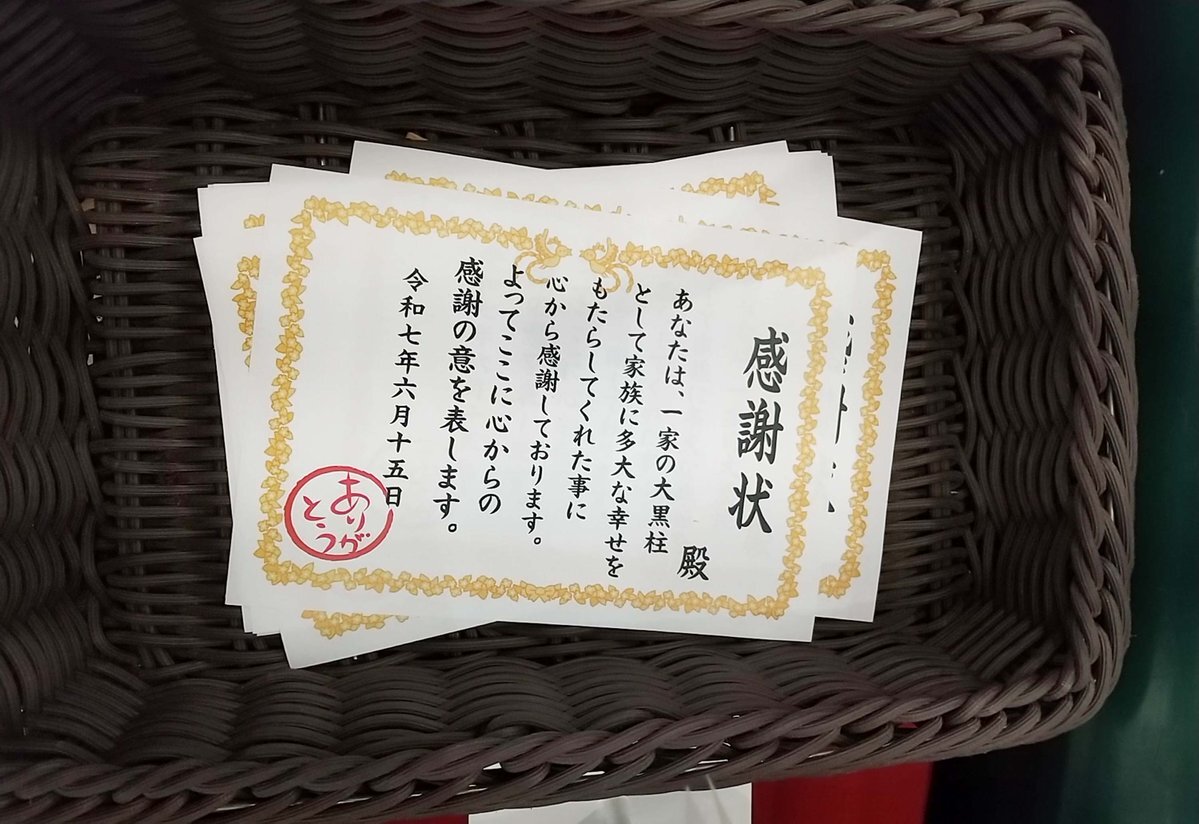 感謝状
殿
あなたは、一家の大黒柱
として家族に多大な幸せを
もたらしてくれた事に
心から感謝しております。
よってここに心からの
感謝の意を表します。
令和七年六月十五日
ありがとう